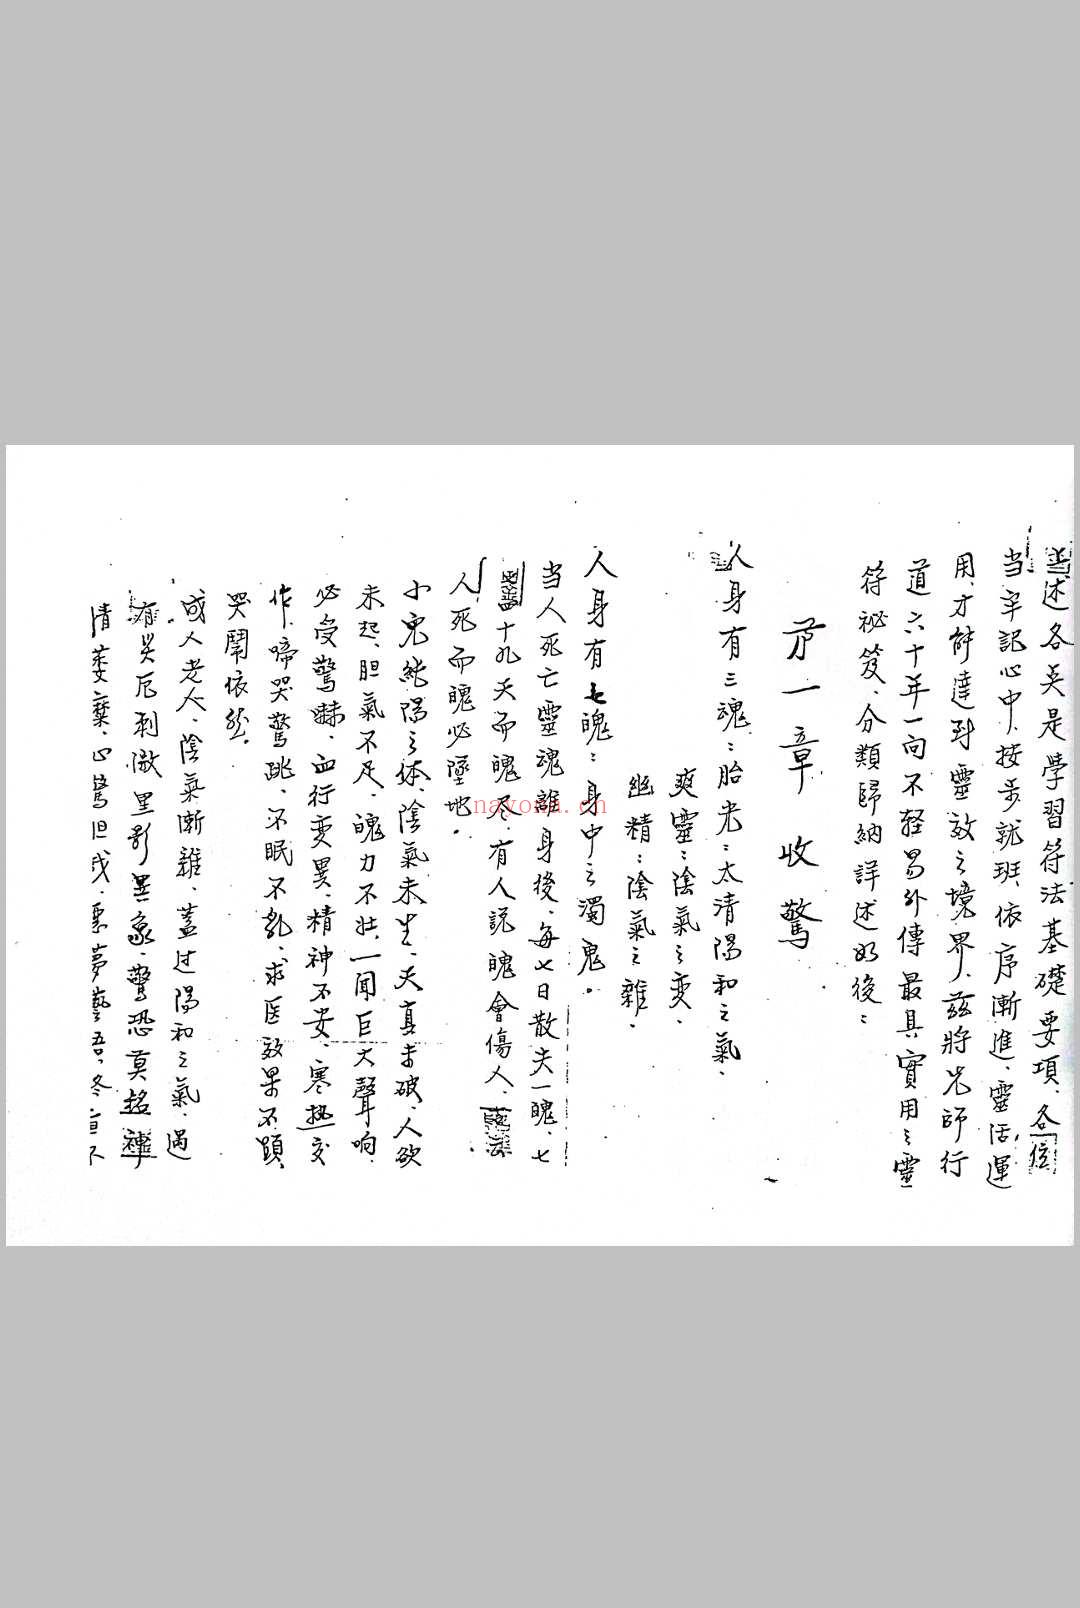 述各点是學習符法基礎要項、各位
当牢記心中、按步就班、依序漸進、靈活運
用、才能達到靈效之境界、兹將先師行
道六十年一向不輕易外傳最具實用之靈
符祕笈、分類歸納詳述如後：
第一章 收驚
人身有三魂：胎光：太清陽和之氣、
爽靈：陰氣之变、
幽精：陰氣之雜、
人身有七魄：身中之濁鬼。
当人死亡靈魂離身後、每七日散失一魄、七
七四十九天而魄尽、有人説魄會傷人、
人死而魄必墜地。
小兒純陽之体、陰氣未生、天真未破、人欲
未起、胆氣不足、魄力不壯、一聞巨大聲响、
必受驚嚇、血行变異、精神不安、寒热交
作、啼哭驚跳、不眠不乳、求医效果不顕、
哭鬧依然。
成人老人、陰氣漸雜、蓋过陽和之氣、遇
有災厄刺激黑影異象、驚恐莫名、神
情萎糜、心驚胆戰、惡夢囈語、
nayona.cn